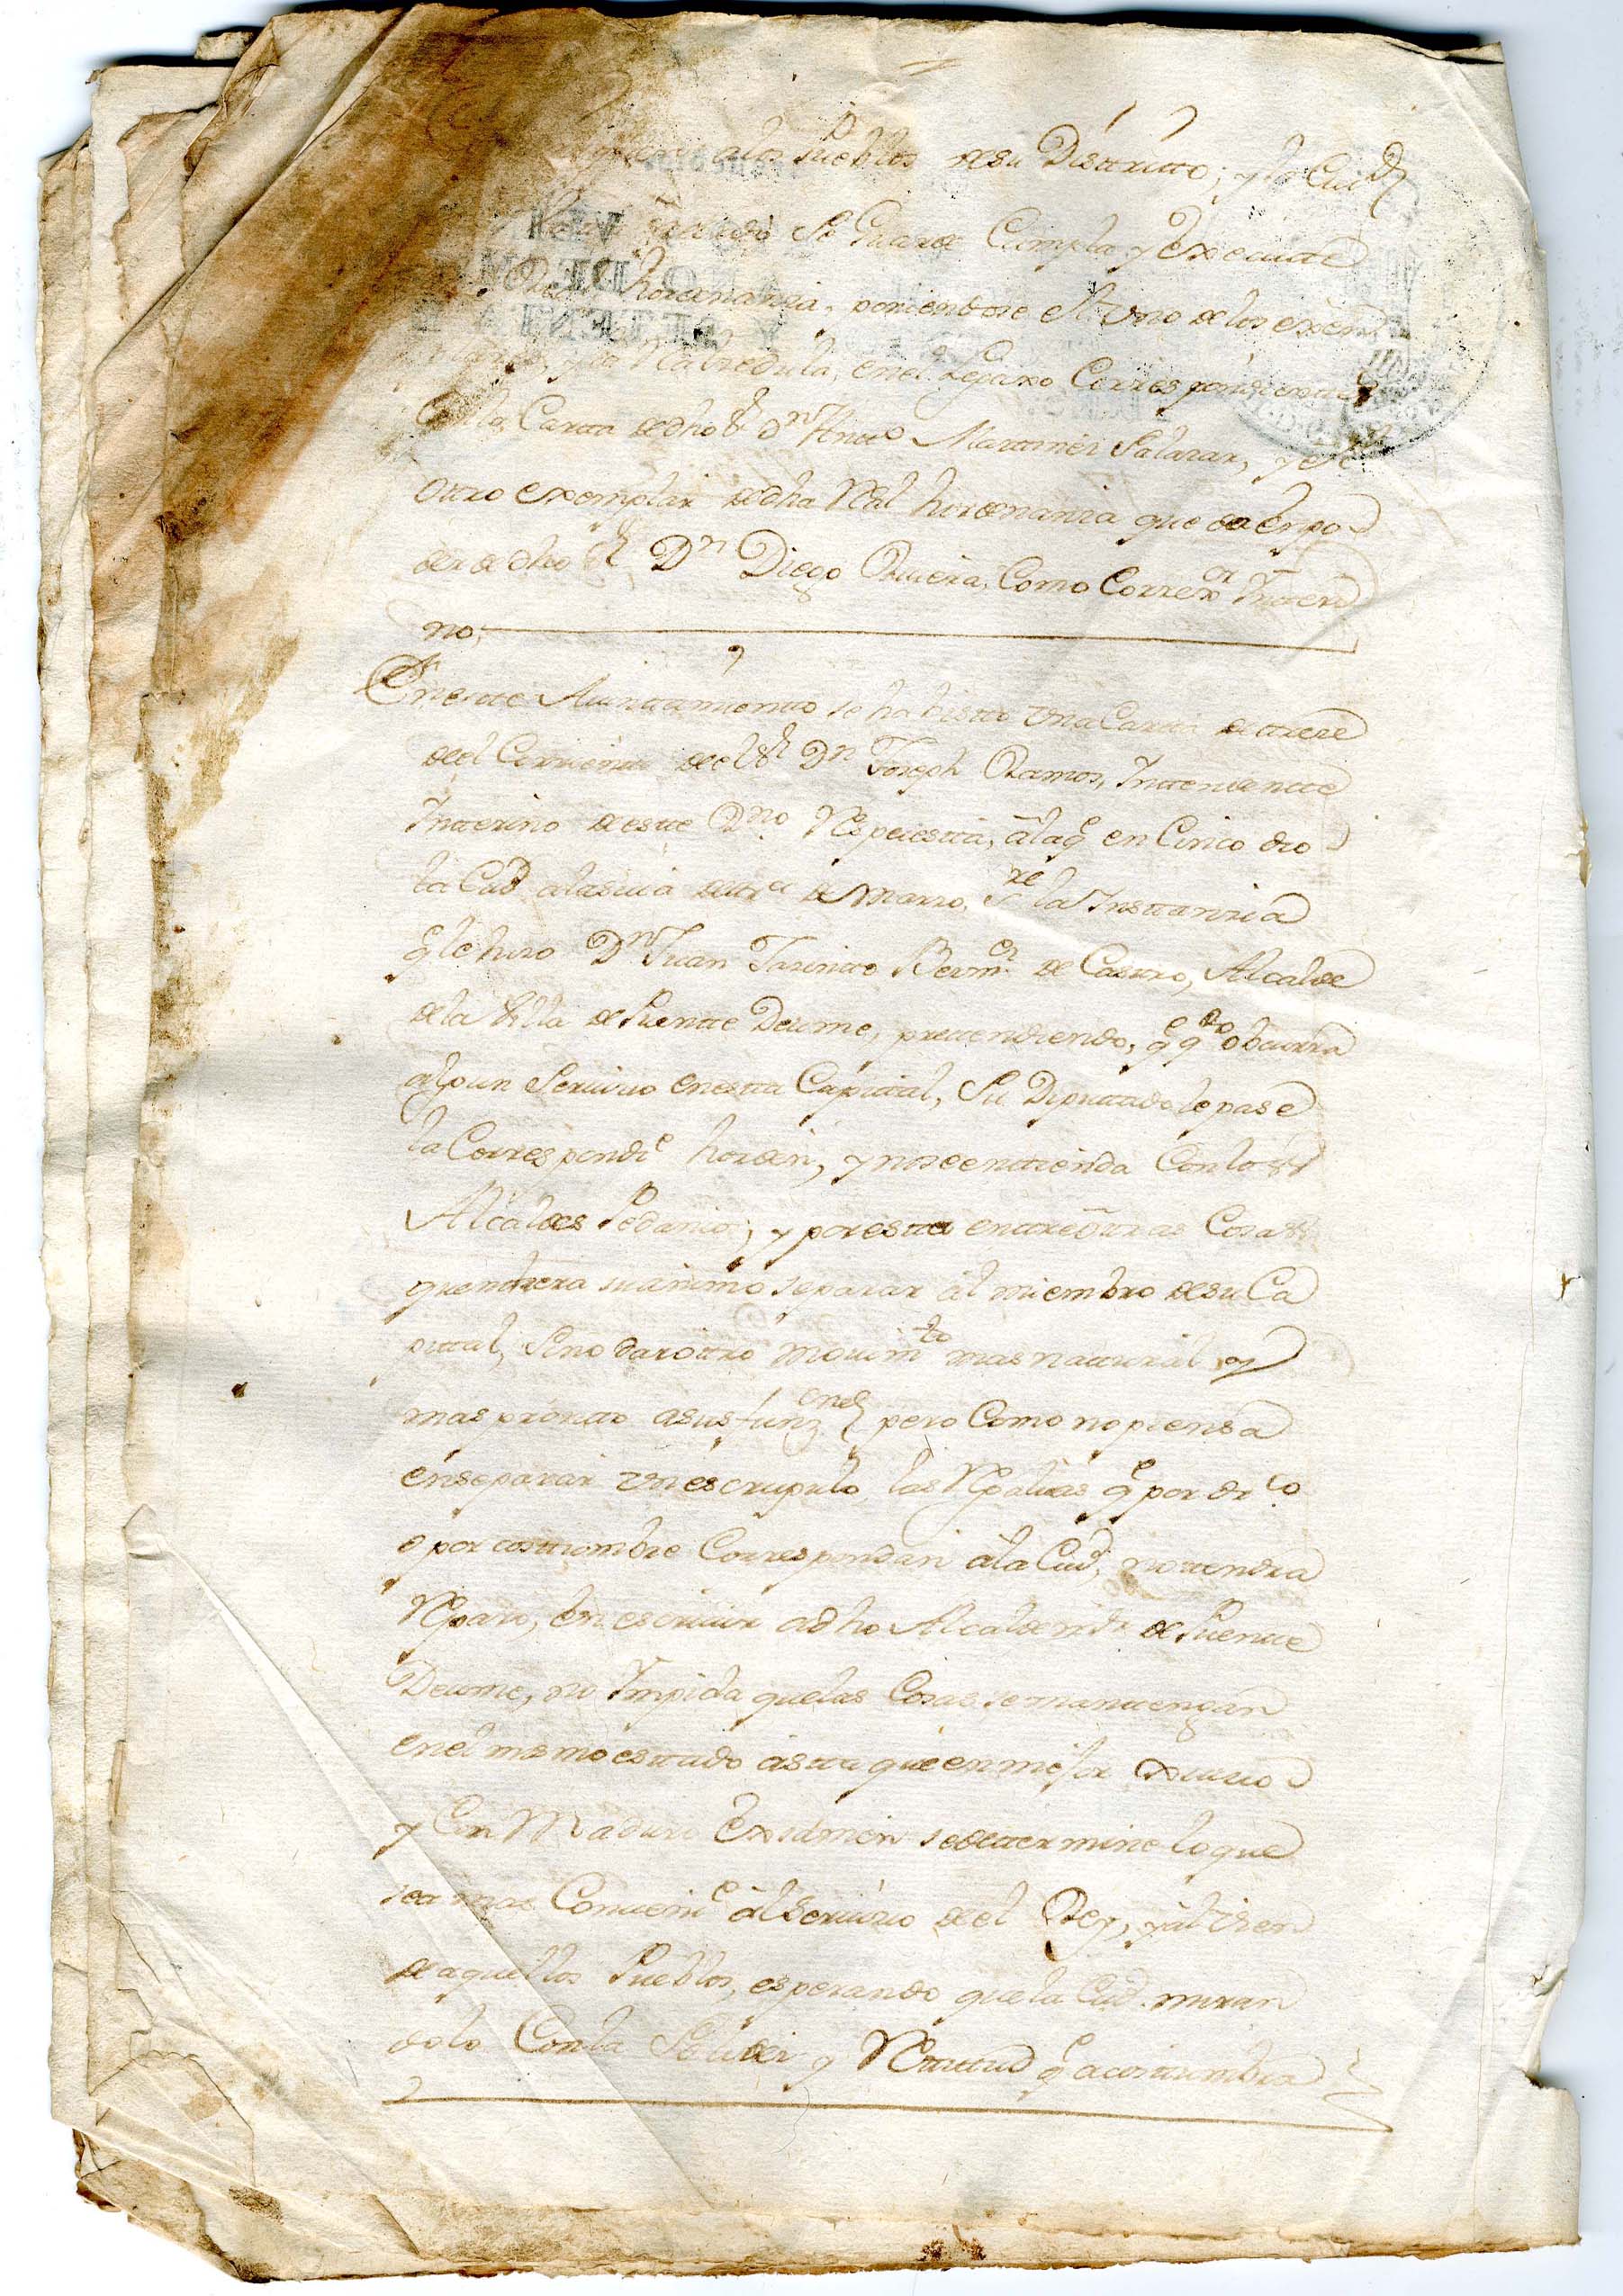 a los Pueblos desu Districtto; y la Ciud
Se Guarde Cumpla y Executte
hordenanza, poniendose el Uno delos exem
plares, y la Rl Cedula, enel Legaxo Correspondientte
Con la Cartta dedho Sr Dn Antto Martinez Salazar, y el
Ottro exemplar dedha Real hordenanza queda en po
der de dho Sr Dn Diego Rivera, Como Correxor Intteri
no,
Eneste Aiunttamientto se ha visto Una Carta de trece
deel Corriente deel Sr Dn Joseph Ramos, Inttendentte
Interino deeste Rno Respuestta, â la q̃ en Cinco dio
la Ciud alasuia de de Marzo, sre la Insttanzia
q̃ le hizo Dn Juan Jazintto Bermz de Casttro, Alcalde
dela Villa de Puentte Deume, prettendiendo, q̃ qdo obcurra
algun Servicio enestta Capittal, Su Diputtado le pase
la Correspondte horden, y nose enttienda Conlos
Alcaldes Pedanios, y por estta entre ottras Cosas
queno hera su ánimo separar al miembro desu Ca
pittal, Sino dar ottro Movimto mas natural, y
mas prontto asus funzones pero Como no piensa
én separar Un escrupulo, las Regalias q̃ por dro
o por costtumbre Correspondan â la Ciud, no ttendra
Reparo, en escrivir adho Alcalde de Puentte
Deume, no Impida quelas Cosas se manttengan
enel mismo esttado ástta que en mejor
y Con Maduro Exsamen se dettermine lo que
sea mas Convente âl Servicio deel Rey, y al Vien
de aquellos Pueblos, esperando quela Ciud. miran
dolo Conla Solidez y Recttittud q̃ acosttumbra